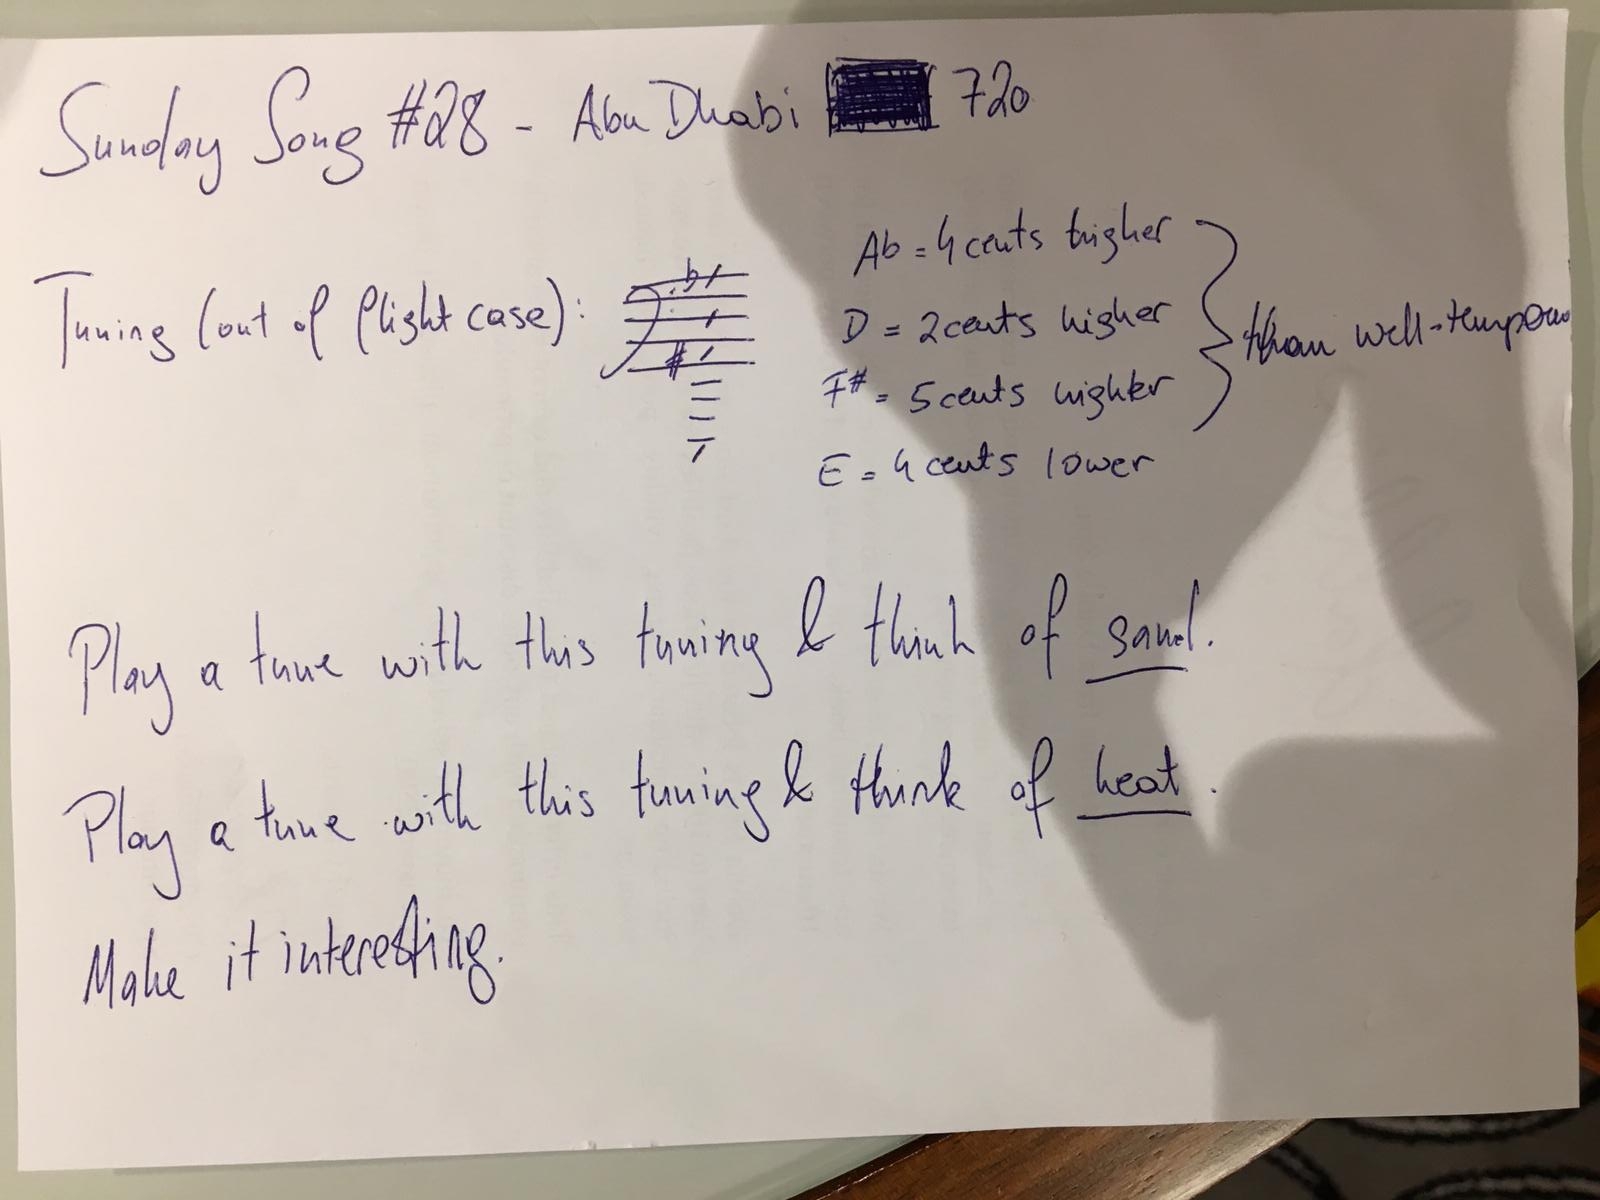 Sunday Song #28 - Abu Dhabi 720
Tuning (out of flight case):
Ab = 4 cents higher
D = 2 cents higher
F# = 5 cents higher
than well-temper
E = 4 cents lower
Play a tune with this tuning & think of sand.
Play a tune with this tuning & think of heat.
Make it interesting.